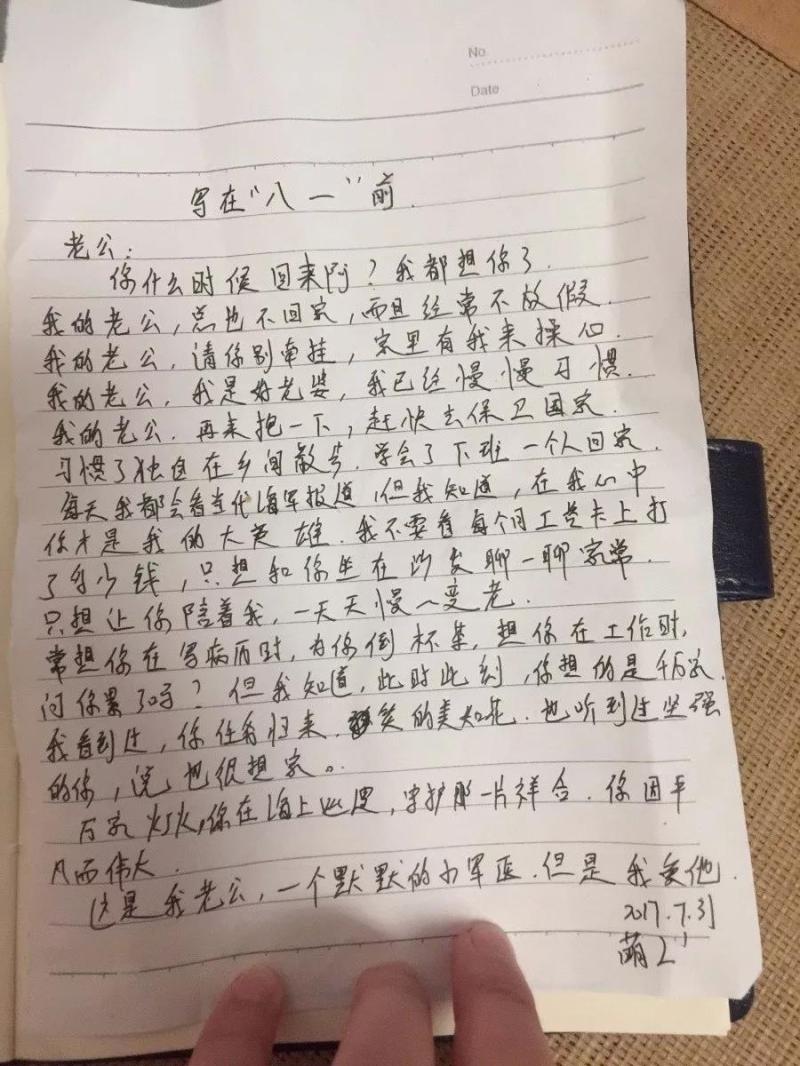 No.
Date
写在“八一”前.
老公:
你什么时候回来阿?我都想你了.
我的老公,总也不回家,而且经常不放假.
我的老公,请你别牵挂,家里有我来操心.
我的老公,我是好老婆,我已经慢慢习惯.
我的老公.再来抱一下,赶快去保卫国家.
习惯了独自在乡间散步.学会了下班一个人回家.
每天我都会看当代海军报道,但我知道,在我心中
你才是我的大英雄.我不要看每个月工资卡上打
了多少钱,只想和你坐在沙发聊一聊家常.
只想让你陪着我,一天天慢慢变老.
常想你在写病历时,为你倒杯茶,想你在工作时,
问你累了吗?但我知道,此时此刻,你想的是千万家.
我看到过,你任务归来.笑的美如花.也听到过坚强
的你,说也很想家。
万家灯火,你在海上巡逻,守护那一片祥合.你因平
凡而伟大.
这是我老公,一个默默的小军医.但是我爱他.
2017.7.31
萌